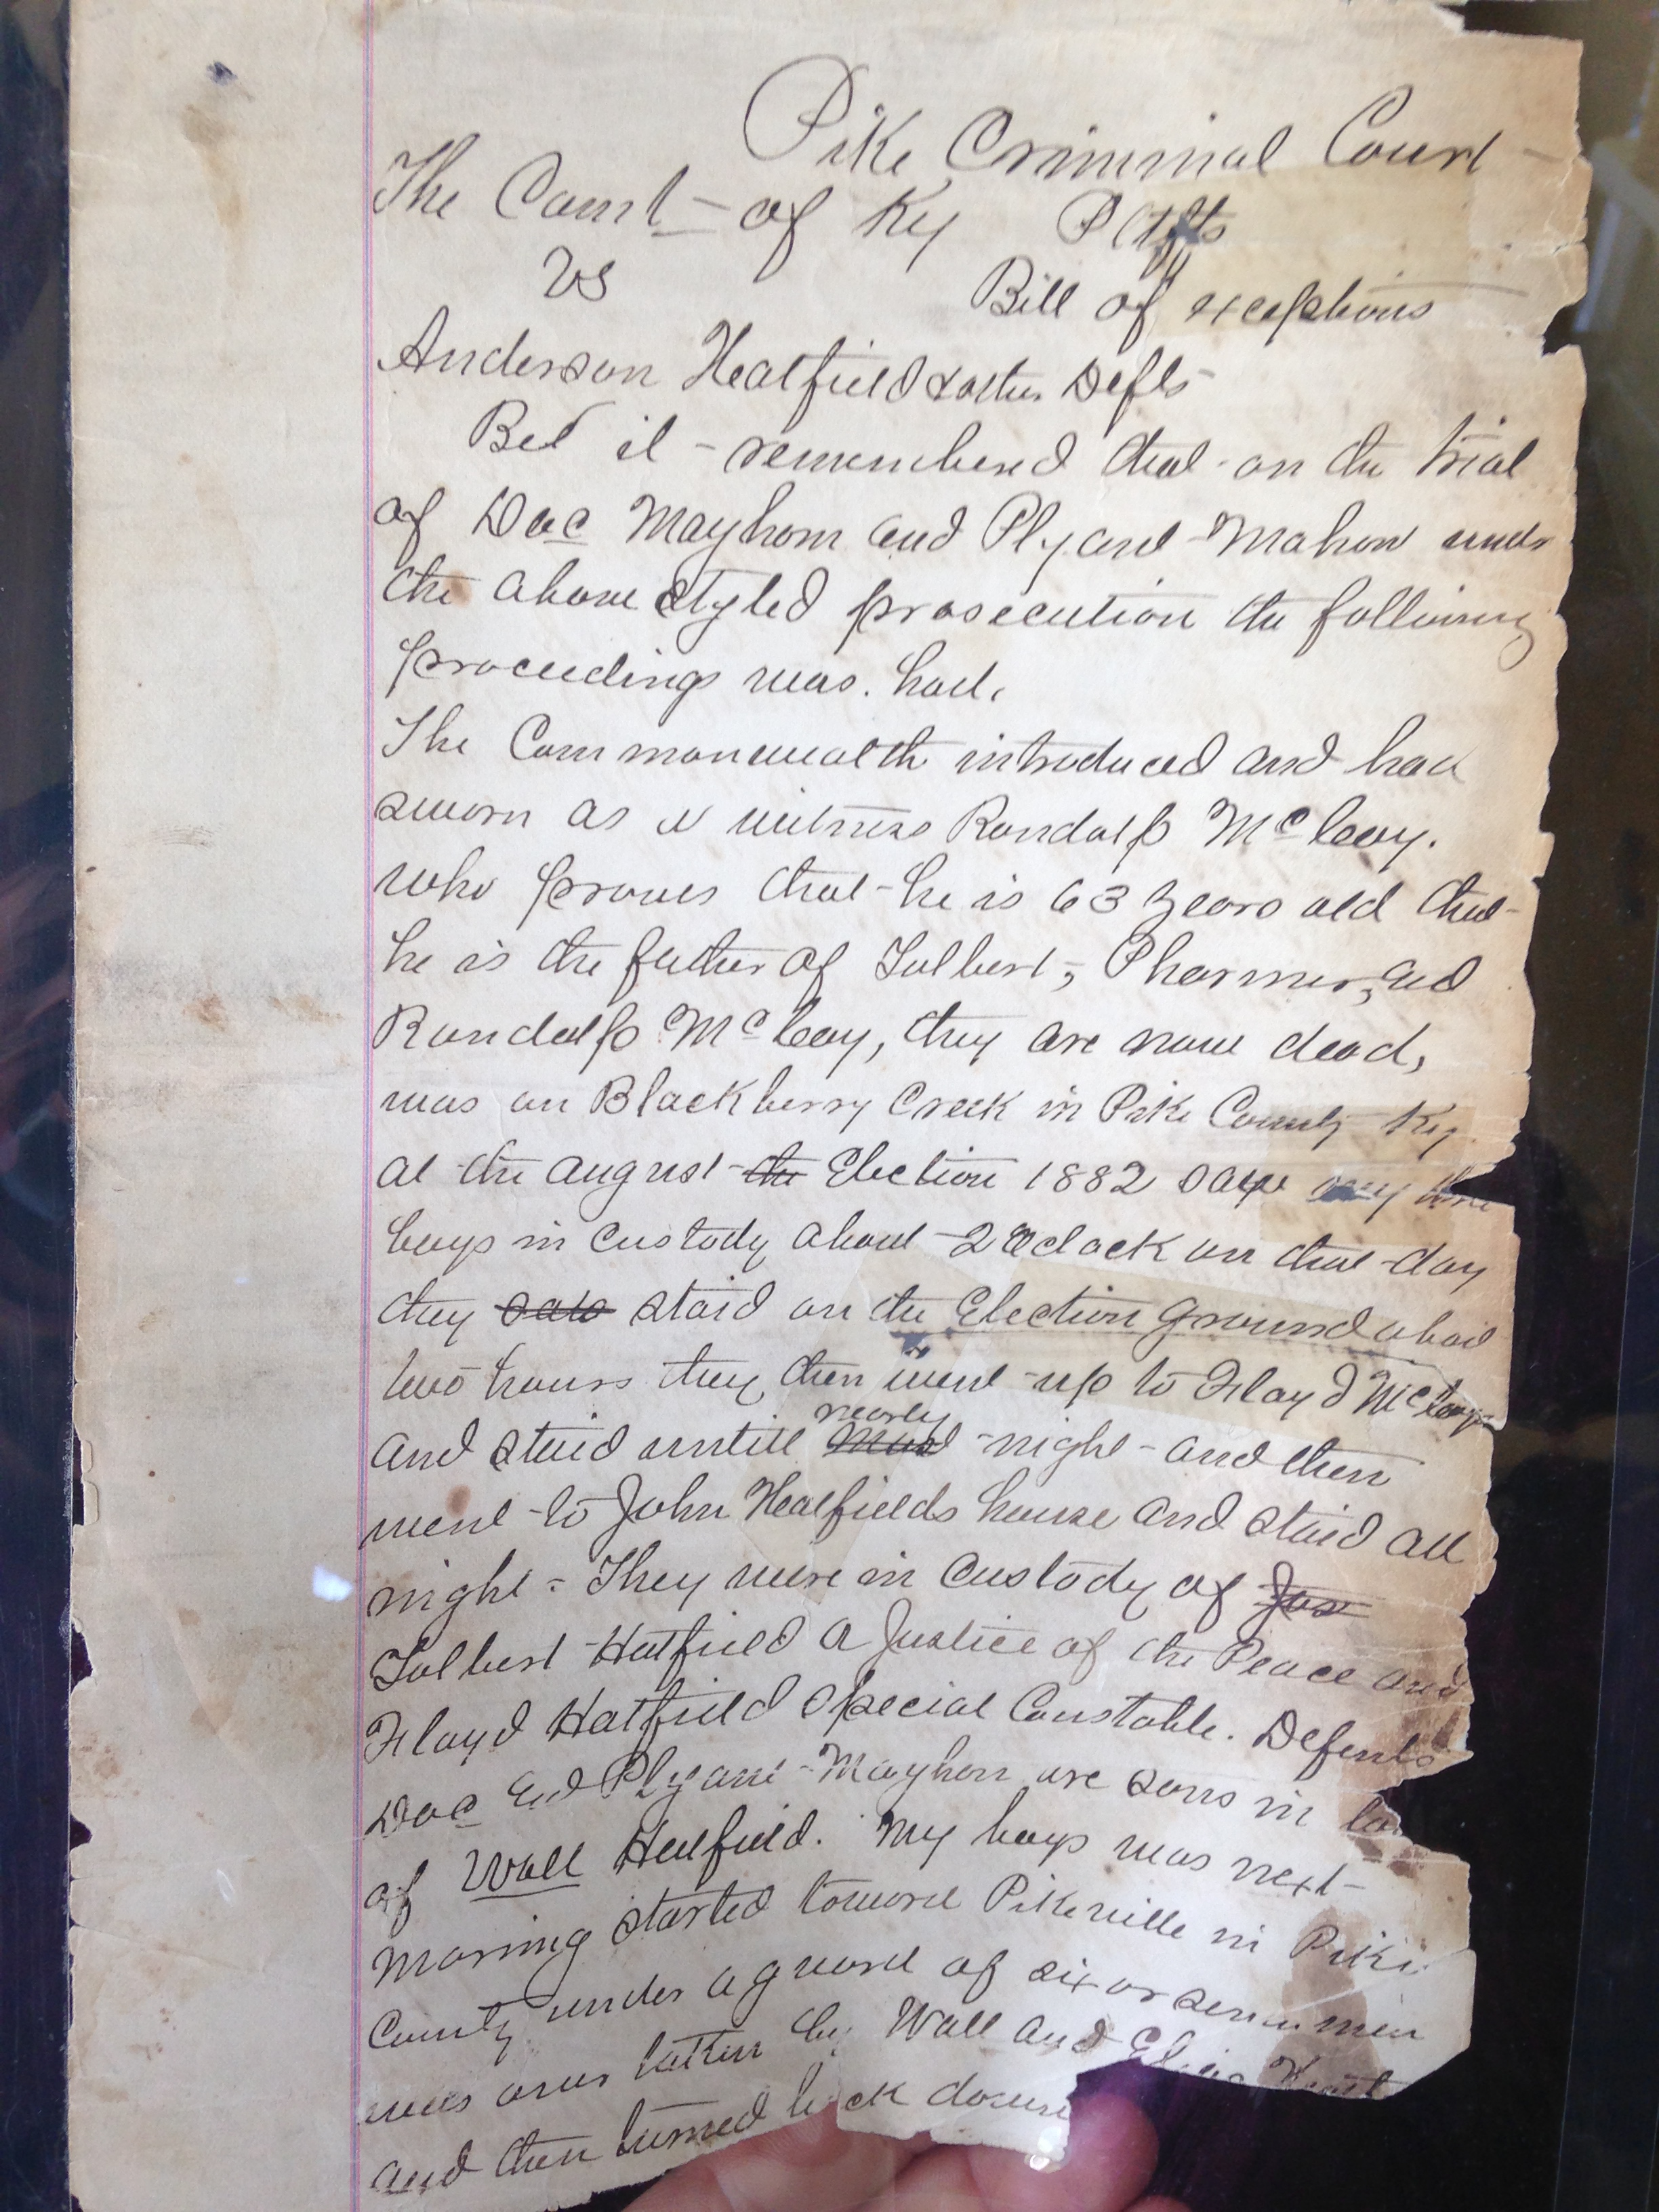 Pike Criminal Court
The Comt of Ky Plffs
VS
Bill of exceptions
Anderson Hatfield & other Defts
Bee it remembered that on the trial
of Doc Mayhorn and Plyant Mahon under
the above styled prosecution the following
proceedings was. had.
The Commonwealth introduced and had
sworn as a witness Randolp McCoy.
who proves that he is 63 years old that
he is the father of Tolbert, Pharmer, and
Randolp McCoy, they are now dead,
was on Blackberry Creek in Pike County Ky
at the august the Election 1882 saw my three
boys in Custody about 2 Oclock on that day
they saw staid on the Election ground about
two hours they then went up to Floyd McCoys
nearly
and staid untill night and then
went to John Hatfields house and staid all
night - They were in custody of Jos
Tolbert Hatfield a Justice of the Peace and
Floyd Hatfield Special Constable. Defents
Doc and Plyant Mayhorn are sons in la
of Wall Hatfield. My boys was next
morning started toward Pikeville in Pike
County under a guard of six or seven men
was over taken by Wall and Elias Hat
and then turned back down